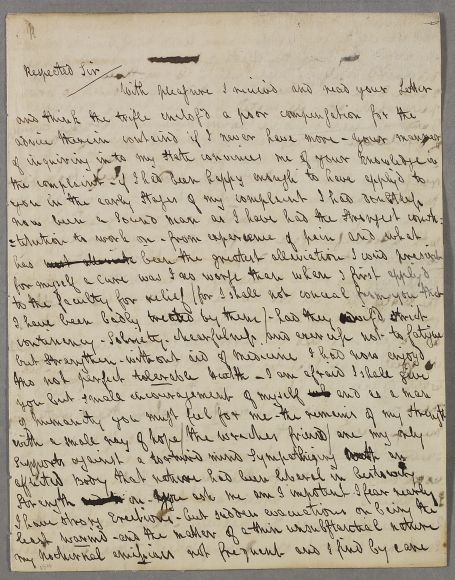 Respected Sir
With pleasure I receivd and read your Letter
and think the trifle enclos'd a poor compensation for the
advice therein containd if I never have more - your manner
of inquiring in to my State convinces me of your knowledge in
the complaint - if I had been happy enough to have applyd to
you in the early Stages of my complaint I had doubtless
now been a Sound man as I have had the Strongest consti-
-tution to work on - from experience of pain and what
has been the greatest alleviation I coud prescribe
for myself a Cure was I no worse than when I first applyd
to the Faculty for relief / for I shall not conceal from you that
I have been badly treated by them / - had they strict
continency - Sobriety - chearfulness and exercise not to fatigue
but strengthen - without aid of Medicine I had now enjoyd
tho not perfect tolerable Health - I am afraid I shall give
you but small encouragement of myself and as a man
of humanity you must feel for me - the remains of my strength
with a small ray of hope / the wretches friend / are my only
supports against a mind Sympathizing with an
afflicted Body that nature had been liberal in bestowing
Strength on. You ask me am I impotent I fear nearly
I have strong Erections - but sudden evacuations on being the
least warmd - and the matter of a thin unsubstantial nature
my nocturnal emissions not frequent and I find by care